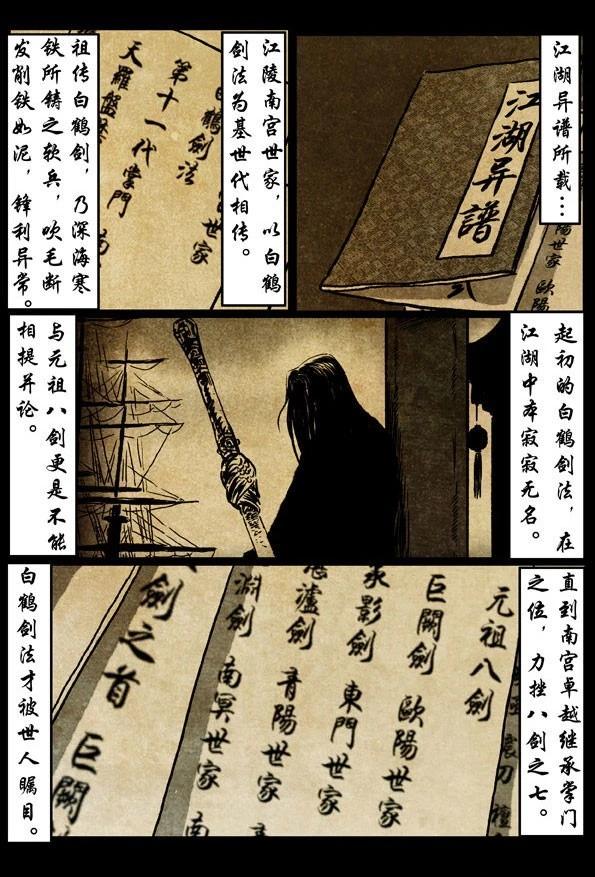 江湖异谱所载…
江湖异譜
陽世家 歐陽
江陵南宫世家，以白鹤
剑法为基世代相传。
祖传白鹤剑，乃深海寒
铁所铸之软兵，吹毛断
发削铁如泥，锋利异常。
白鶴劍法
世家
第十一代掌門
南
天羅盤
起初的白鹤剑法，在
江湖中本寂寂无名。
与元祖八剑更是不能
相提并论。
直到南宫卓越继承掌门
之位，力挫八剑之七。
元祖八劍
巨闕劍 歐陽世家
承影劍 東門世家
瀘劍 青陽世家
淵劍 南冥世家
劍之首 巨闕
南
白鹤剑法才被世人瞩目。